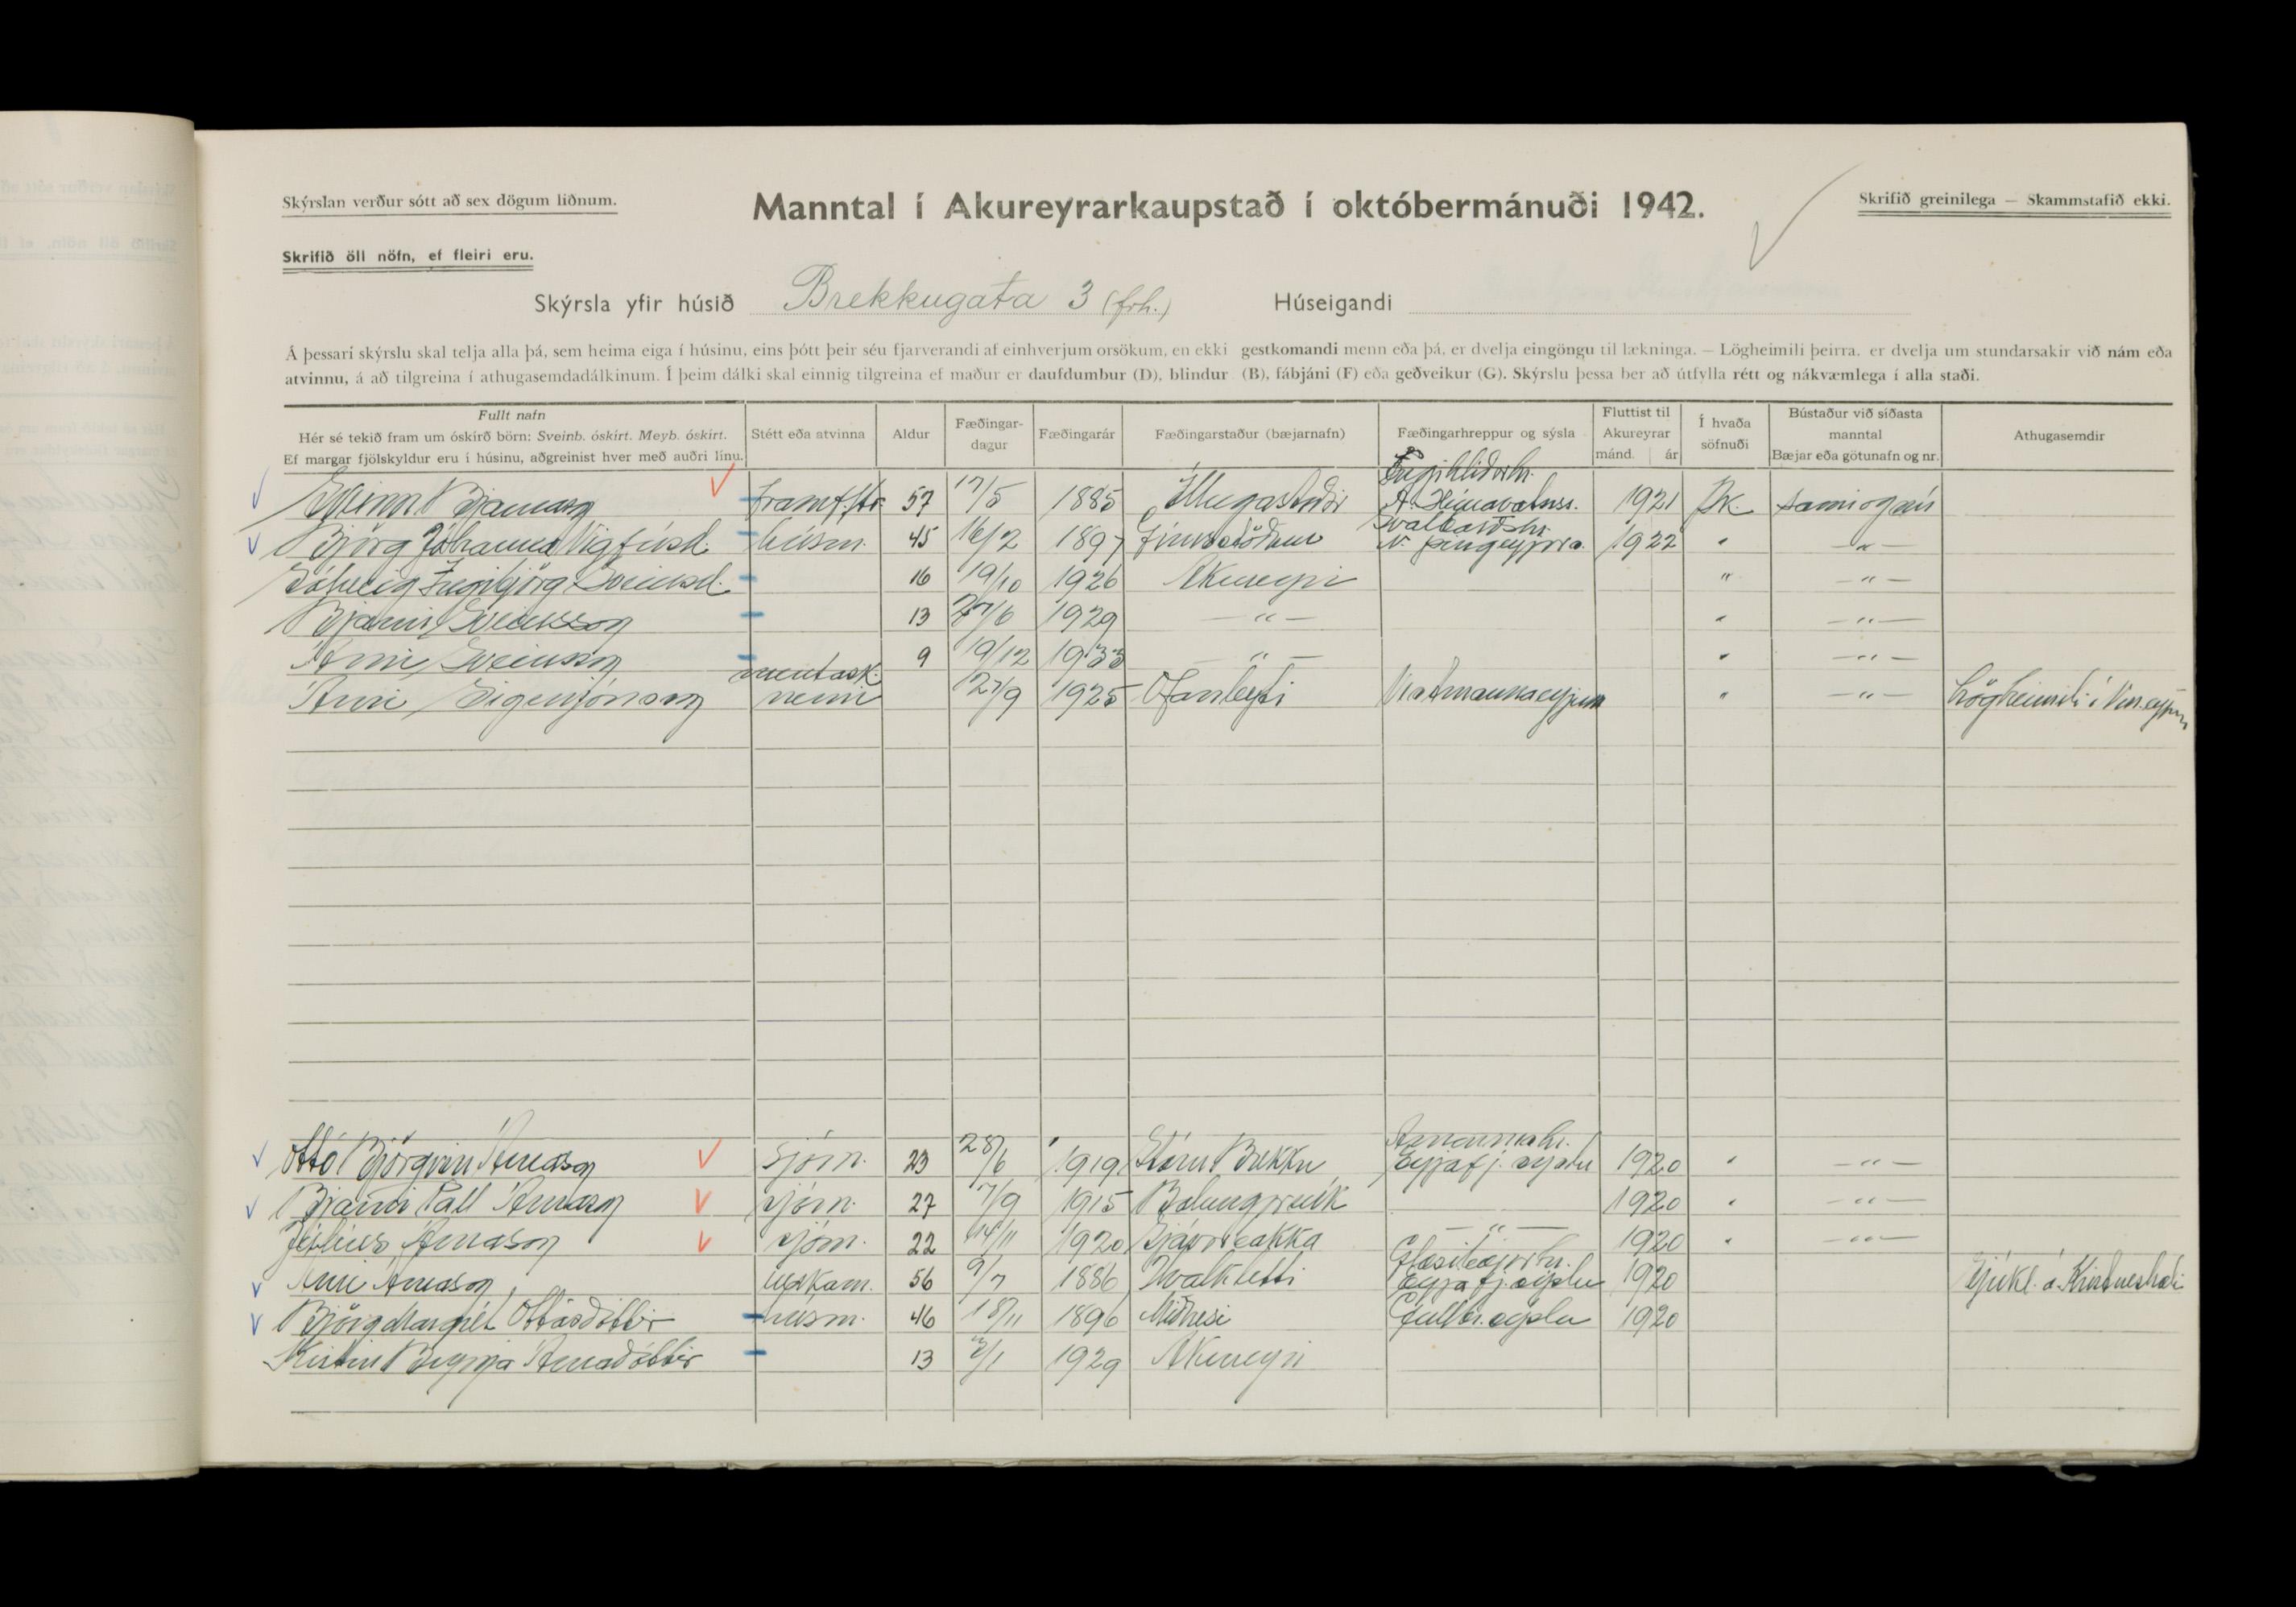 Skýrslan verður sótt að sex dögum liðnum.
Manntal í Akureyrarkaupstað í októbermánuði 1942.
Skrifið greinilega — Skammstafið ekki.
Skrifið öll nöfn, ef fleiri eru.
Skýrsla yfir húsið Brekkugata 3 (frh.) Húseigandi
Á þessari skýrslu skal telja alla þá, sem heima eiga í húsinu, eins þótt þeir séu fjarverandi af einhverjum orsökum, en ekki gestkomandi menn eða þá, er dvelja eingöngu til lækninga. — Lögheimili þeirra, er dvelja um stundarsakir við nám eða
atvinnu, á að tilgreina í athugasemdadálkinum. Í þeim dálki skal einnig tilgreina ef maður er daufdumbur (D), blindur (B), fábjáni (F) eða geðveikur (G). Skýrslu þessa ber að útfylla rétt og nákvæmlega í alla staði.
Fullt nafn
Hér sé tekið fram um óskírð börn: Sveinb. óskírt. Meyb. óskírt.
Ef margar fjölskyldur eru í húsinu, aðgreinist hver með auðri línu.
Stétt eða atvinna
Aldur
Fæðingar-
dagur
Fæðingarár
Fæðingarstaður (bæjarnafn)
Fæðingarhreppur og sýsla
Fluttist til
Akureyrar
mánd. ár
Í hvaða
söfnuði
Bústaður við síðasta
manntal
Bæjar eða götunafn og nr.
Athugasemdir
Sveinn Bjarnason framf.ftr. 57 17/5 1885 Illugastaðir A. Húnavatnss. 1921 Þk. sami og áður
Björg Jóhanna Vigfúsd. húsm. 45 16/2 1897 Svalbarðshr. N. Þingeyjars. 1922 " — " —
Sólveig Ingibjörg Sveinsd. 16 19/10 1926 Akureyri " — " —
Bjarni Sveinsson 13 27/6 1929 — " — " — " —
Árni Sveinsson 9 19/12 1933 — " — " — " —
Árni Sigurjónsson mentask. nemi 27/9 1925 Ofanleyti Vestmannaeyjum " — " — Lögheimili í Ves.eyjum
Ottó Björgvin Árnason sjóm. 23 28/6 1919 Stóru Brekku Arnarneshr. Eyjafj. sýslu 1920 " — " —
Bjarni Páll Árnason sjóm. 27 7/9 1915 Bolungarvík 1920 " — " —
Júlíus Árnason sjóm. 22 14/11 1920 Sjávarbakka — " — 1920 " — " —
Árni Árnason verkam. 56 9/7 1886 Hvalkletti Glæsibæjarhr. Eyjafj. sýslu 1920 Sjúkl. á Kristneshæli
Björg Margrét Ottósdóttir húsm. 46 18/11 1896 Miðnesi Gullbr. sýslu 1920
Kristín Bryngja Árnadóttir 13 2/1 1929 Akureyri